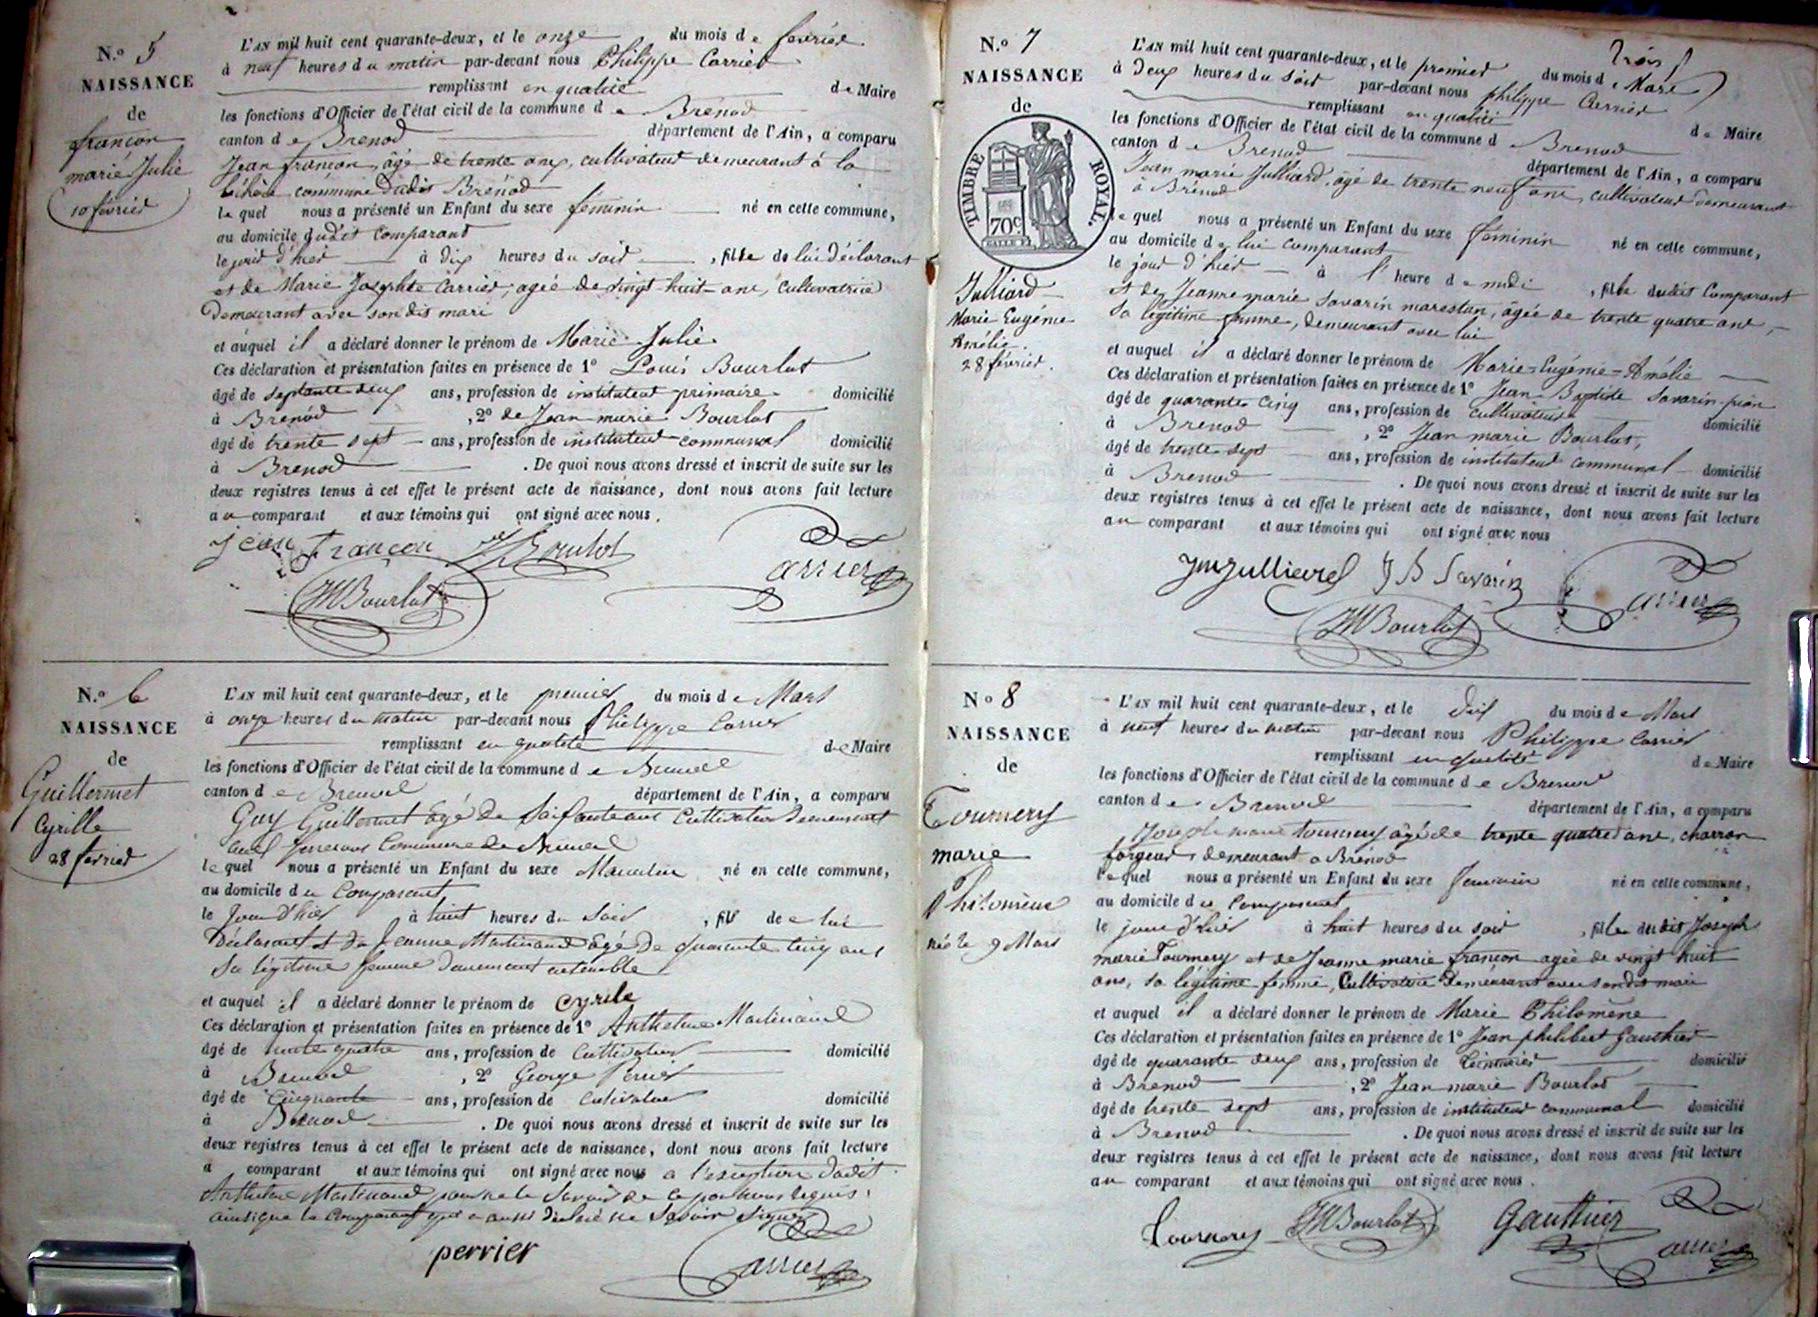 N.º 5
NAISSANCE
de
françon
marie Julie
10 février
L'AN mil huit cent quarante-deux, et le onze du mois de février
à neuf heures du matin par-devant nous Philippe Carrier
remplissant en qualité de Maire
les fonctions d'Officier de l'état civil de la commune de Brénod
canton de Brenod département de l'Ain, a comparu
Jean françon, âgé de trente ans, cultivateur demeurant à la
commune dudit Brénod
le quel nous a présenté un Enfant du sexe féminin né en cette commune,
au domicile dudit comparant
le jour d'hier à dix heures du soir, fille de lui déclarant
et de Marie Josephte Carrier, agée de vingt-huit ans, cultivatrice
demeurant avec son dit mari
et auquel il a déclaré donner le prénom de Marie Julie
Ces déclaration et présentation faites en présence de 1º Louis Bourlot
âgé de septante deux ans, profession de instituteur primaire domicilié
à Brenod, 2º de Jean marie Bourlot
âgé de trente sept ans, profession de instituteur communal domicilié
à Brenod. De quoi nous avons dressé et inscrit de suite sur les
deux registres tenus à cet effet le présent acte de naissance, dont nous avons fait lecture
au comparant et aux témoins qui ont signé avec nous.
jean françon Bourlot
JMBourlot Carrier
N.º 6
NAISSANCE
de
Guillermet
Cyrille
28 février
L'AN mil huit cent quarante-deux, et le premier du mois de Mars
à onze heures du matin par-devant nous Philippe Carrier
remplissant en qualité de Maire
les fonctions d'Officier de l'état civil de la commune de Brenod
canton de Brenod département de l'Ain, a comparu
Guy Guillermet âgé de Soixante ans Cultivateur Demeurant
Commune de Brenod
le quel nous a présenté un Enfant du sexe Masculin né en cette commune,
au domicile du Comparant
le Jour d'hier à huit heures du Soir, fils de lui
Déclarant et de Jeanne Martinand âgé De quarante cinq ans
Sa légitime femme Demeurant ensemble
et auquel il a déclaré donner le prénom de Cyrile
Ces déclaration et présentation faites en présence de 1º Anthelme Martinand
âgé de trente quatre ans, profession de Cultivateur domicilié
à Brenod, 2º George Perrier
âgé de Cinquante ans, profession de Cultivateur domicilié
à Brenod. De quoi nous avons dressé et inscrit de suite sur les
deux registres tenus à cet effet le présent acte de naissance, dont nous avons fait lecture
à comparant et aux témoins qui ont signé avec nous a l'exception dudit
Anthelme Martinand pour ne le Savoir de ce par nous requis,
ainsi que le Comparant qui a aussi déclaré ne Savoir Signer
perrier Carrier
N.º 7
NAISSANCE
de
TIMBRE ROYAL.
70c
Julliard
Marie Eugénie
Amélie.
28 février.
trois
L'AN mil huit cent quarante-deux, et le premier du mois de Mars
à deux heures du soir par-devant nous philippe Carrier
remplissant en qualité de Maire
les fonctions d'Officier de l'état civil de la commune de Brenod
canton de Brenod département de l'Ain, a comparu
Jean marie Julliard, âgé de trente neuf ans, cultivateur demeurant
à Brénod
le quel nous a présenté un Enfant du sexe féminin né en cette commune,
au domicile de lui comparant
le jour d'hier à l' heure de midi, fille dudit Comparant
et de Jeanne marie Savarin marestan, âgée de trente quatre ans,
Sa légitime femme, demeurant avec lui
et auquel il a déclaré donner le prénom de Marie=Eugénie=Amélie
Ces déclaration et présentation faites en présence de 1º Jean-Baptiste Savarin pion
âgé de quarante cinq ans, profession de cultivateur domicilié
à Brenod, 2º Jean marie Bourlot,
âgé de trente sept ans, profession de instituteur communal domicilié
à Brenod. De quoi nous avons dressé et inscrit de suite sur les
deux registres tenus à cet effet le présent acte de naissance, dont nous avons fait lecture
au comparant et aux témoins qui ont signé avec nous
J B Savarin
JMBourlot Carrier
Nº 8
NAISSANCE
de
Tournery
marie
Philomène
née le 9 Mars
L'AN mil huit cent quarante-deux, et le dix du mois de Mars
à neuf heures du matin par-devant nous Philippe Carrier
remplissant en qualité de Maire
les fonctions d'Officier de l'état civil de la commune de Brenod
canton de Brenod département de l'Ain, a comparu
Joseph marie Tournery âgé de trente quatre ans, charron
forgeur, demeurant à Brénod
lequel nous a présenté un Enfant du sexe feminin né en cette commune,
au domicile du Comparant
le jour d'hier à huit heures du soir, fille dudit Joseph
marie Tournery et de Jeanne marie françon agée de vingt huit
ans, sa légitime femme, Cultivatrice Demeurant avec son dit mari
et auquel il a déclaré donner le prénom de Marie Philomène
Ces déclaration et présentation faites en présence de 1º Jean philibert Gauthier
âgé de quarante deux ans, profession de domicilié
à Brenod, 2º Jean marie Bourlot
âgé de trente sept ans, profession de instituteur communal domicilié
à Brenod. De quoi nous avons dressé et inscrit de suite sur les
deux registres tenus à cet effet le présent acte de naissance, dont nous avons fait lecture
au comparant et aux témoins qui ont signé avec nous.
Tournery JMBourlot Gauthier Carrier